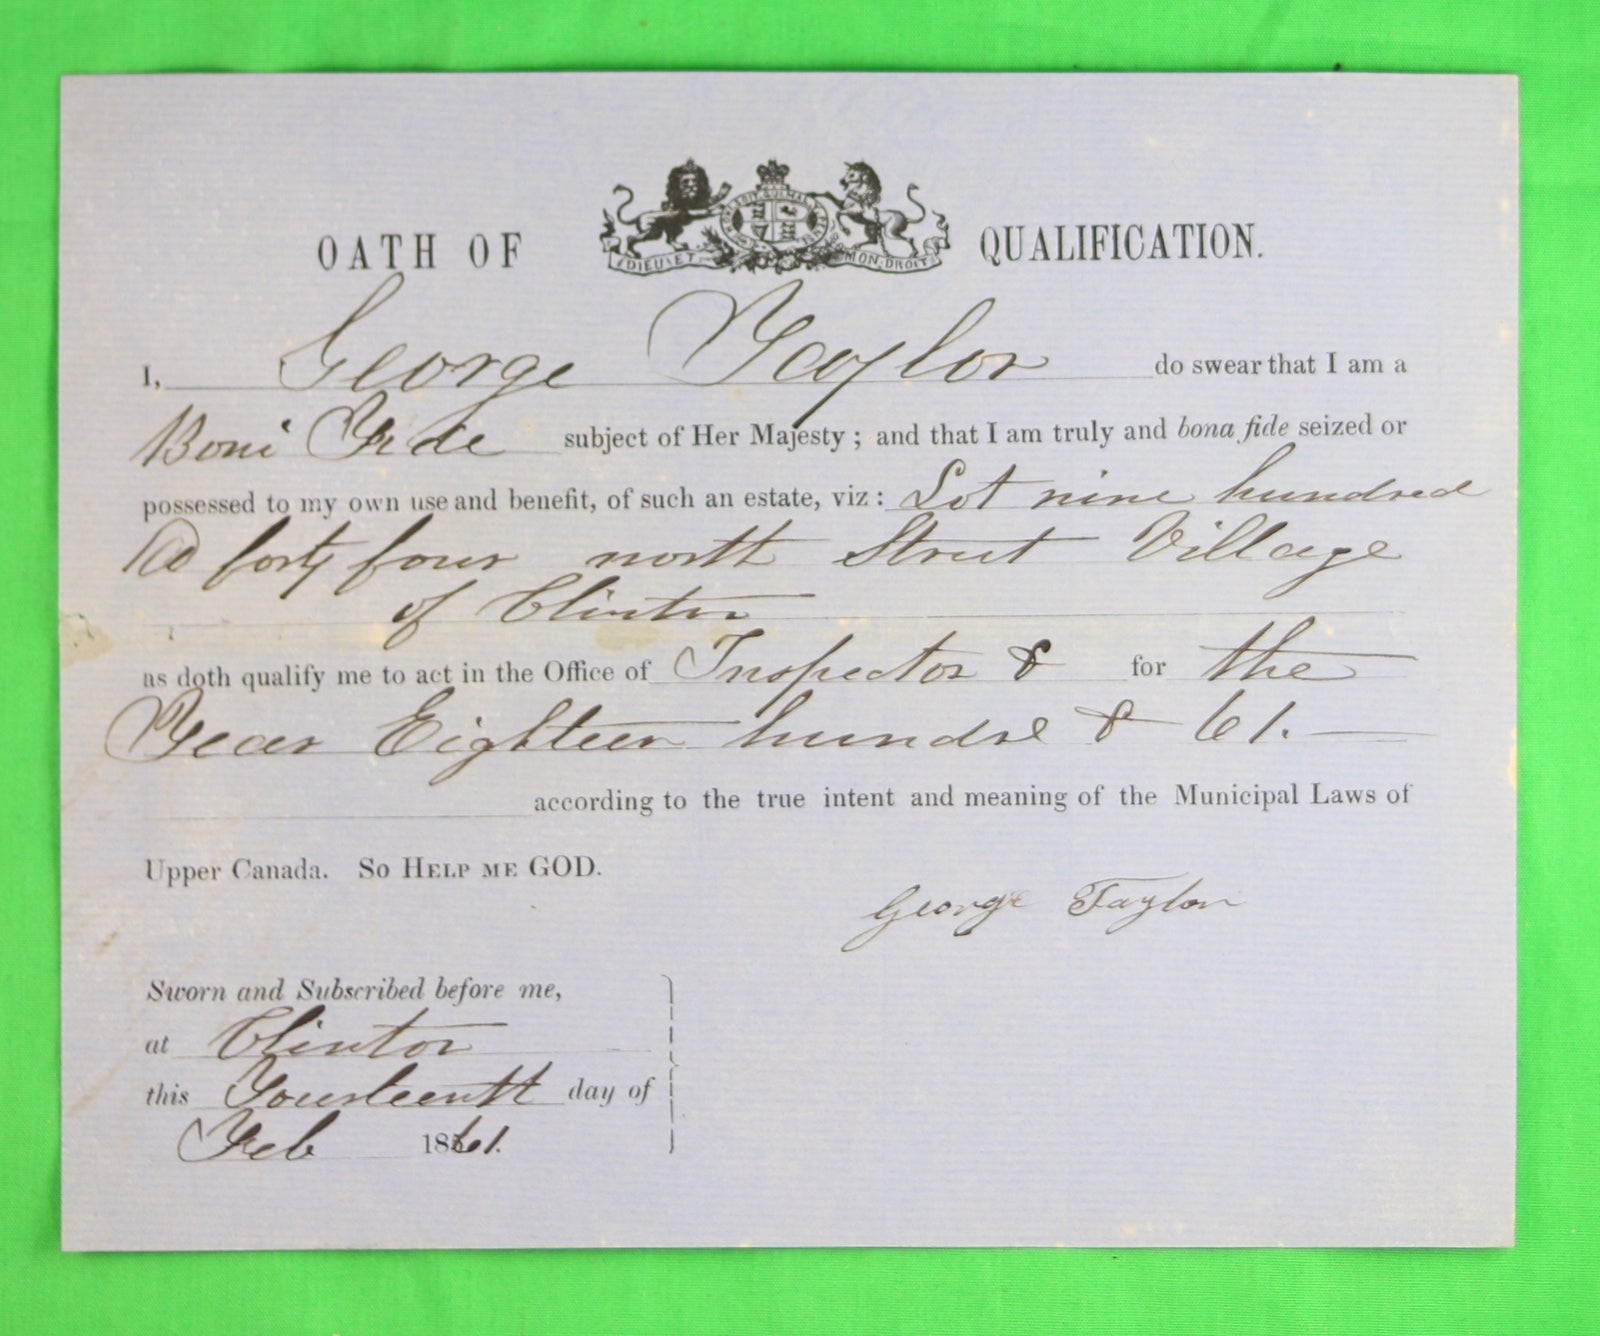 OATH OF QUALIFICATION.
DIEU ET MON DROIT
I, George Taylor do swear that I am a
Boni Fide subject of Her Majesty; and that I am truly and bona fide seized or
possessed to my own use and benefit, of such an estate, viz: Lot nine hundred
forty four north Street Village
of Clinton
as doth qualify me to act in the Office of Inspector & for the
Year Eighteen hundre & 61.
according to the true intent and meaning of the Municipal Laws of
Upper Canada. So HELP ME GOD.
George Taylor
Sworn and Subscribed before me,
at Clinton
this Fourteenth day of
Feb 1861.